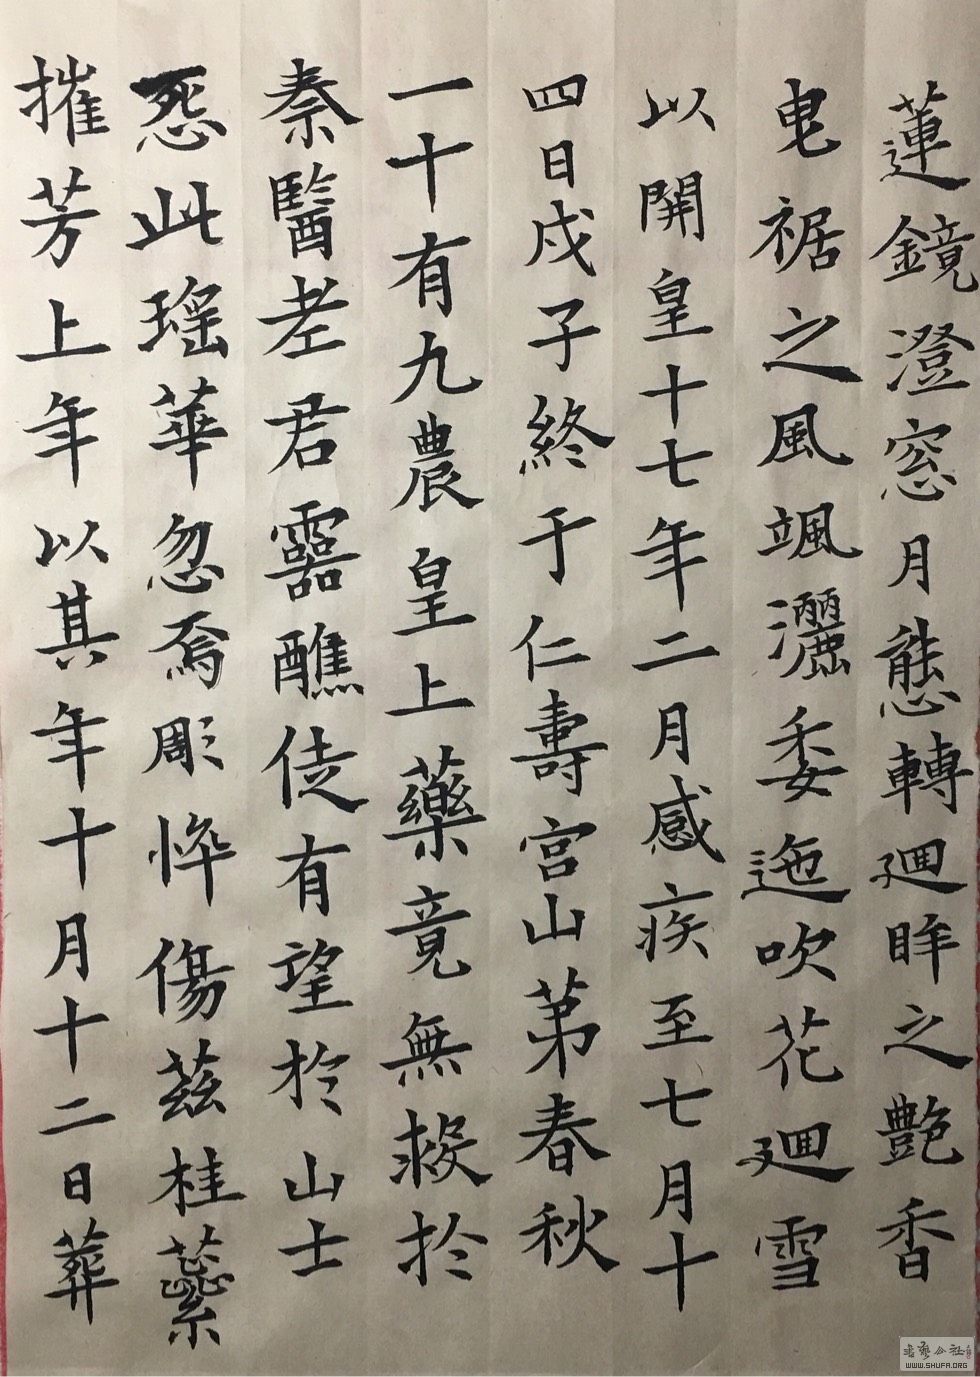 蓮鏡澄窓月態轉廻眸之艷香
曳裾之風颯灑委迤吹花廻雪
以開皇十七年二月感疾至七月十
四日戊子終于仁壽宮山第春秋
一十有九農皇上藥竟無救於
秦醫老君靈醮徒有望於山士
怨此瑤華忽焉彫悴傷茲桂蘂
摧芳上年以其年十月十二日葬
WWW.SHUFA.ORG